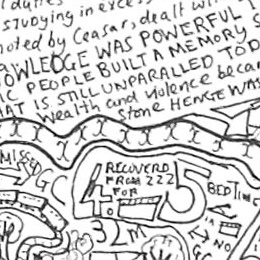 duties
studying in exce
noted by Ceasar, dealt wi
OWLEDGE WAS POWERFUL
IC PEOPLE BUILT A MEMORY S
AT IS STILL UNPARALLED TOD
Wealth and violence becam
stone HENGE WAS
MISSED
RECOVERD
FROM 222
FOR
4.0
5
BEDTIME
32M
NO